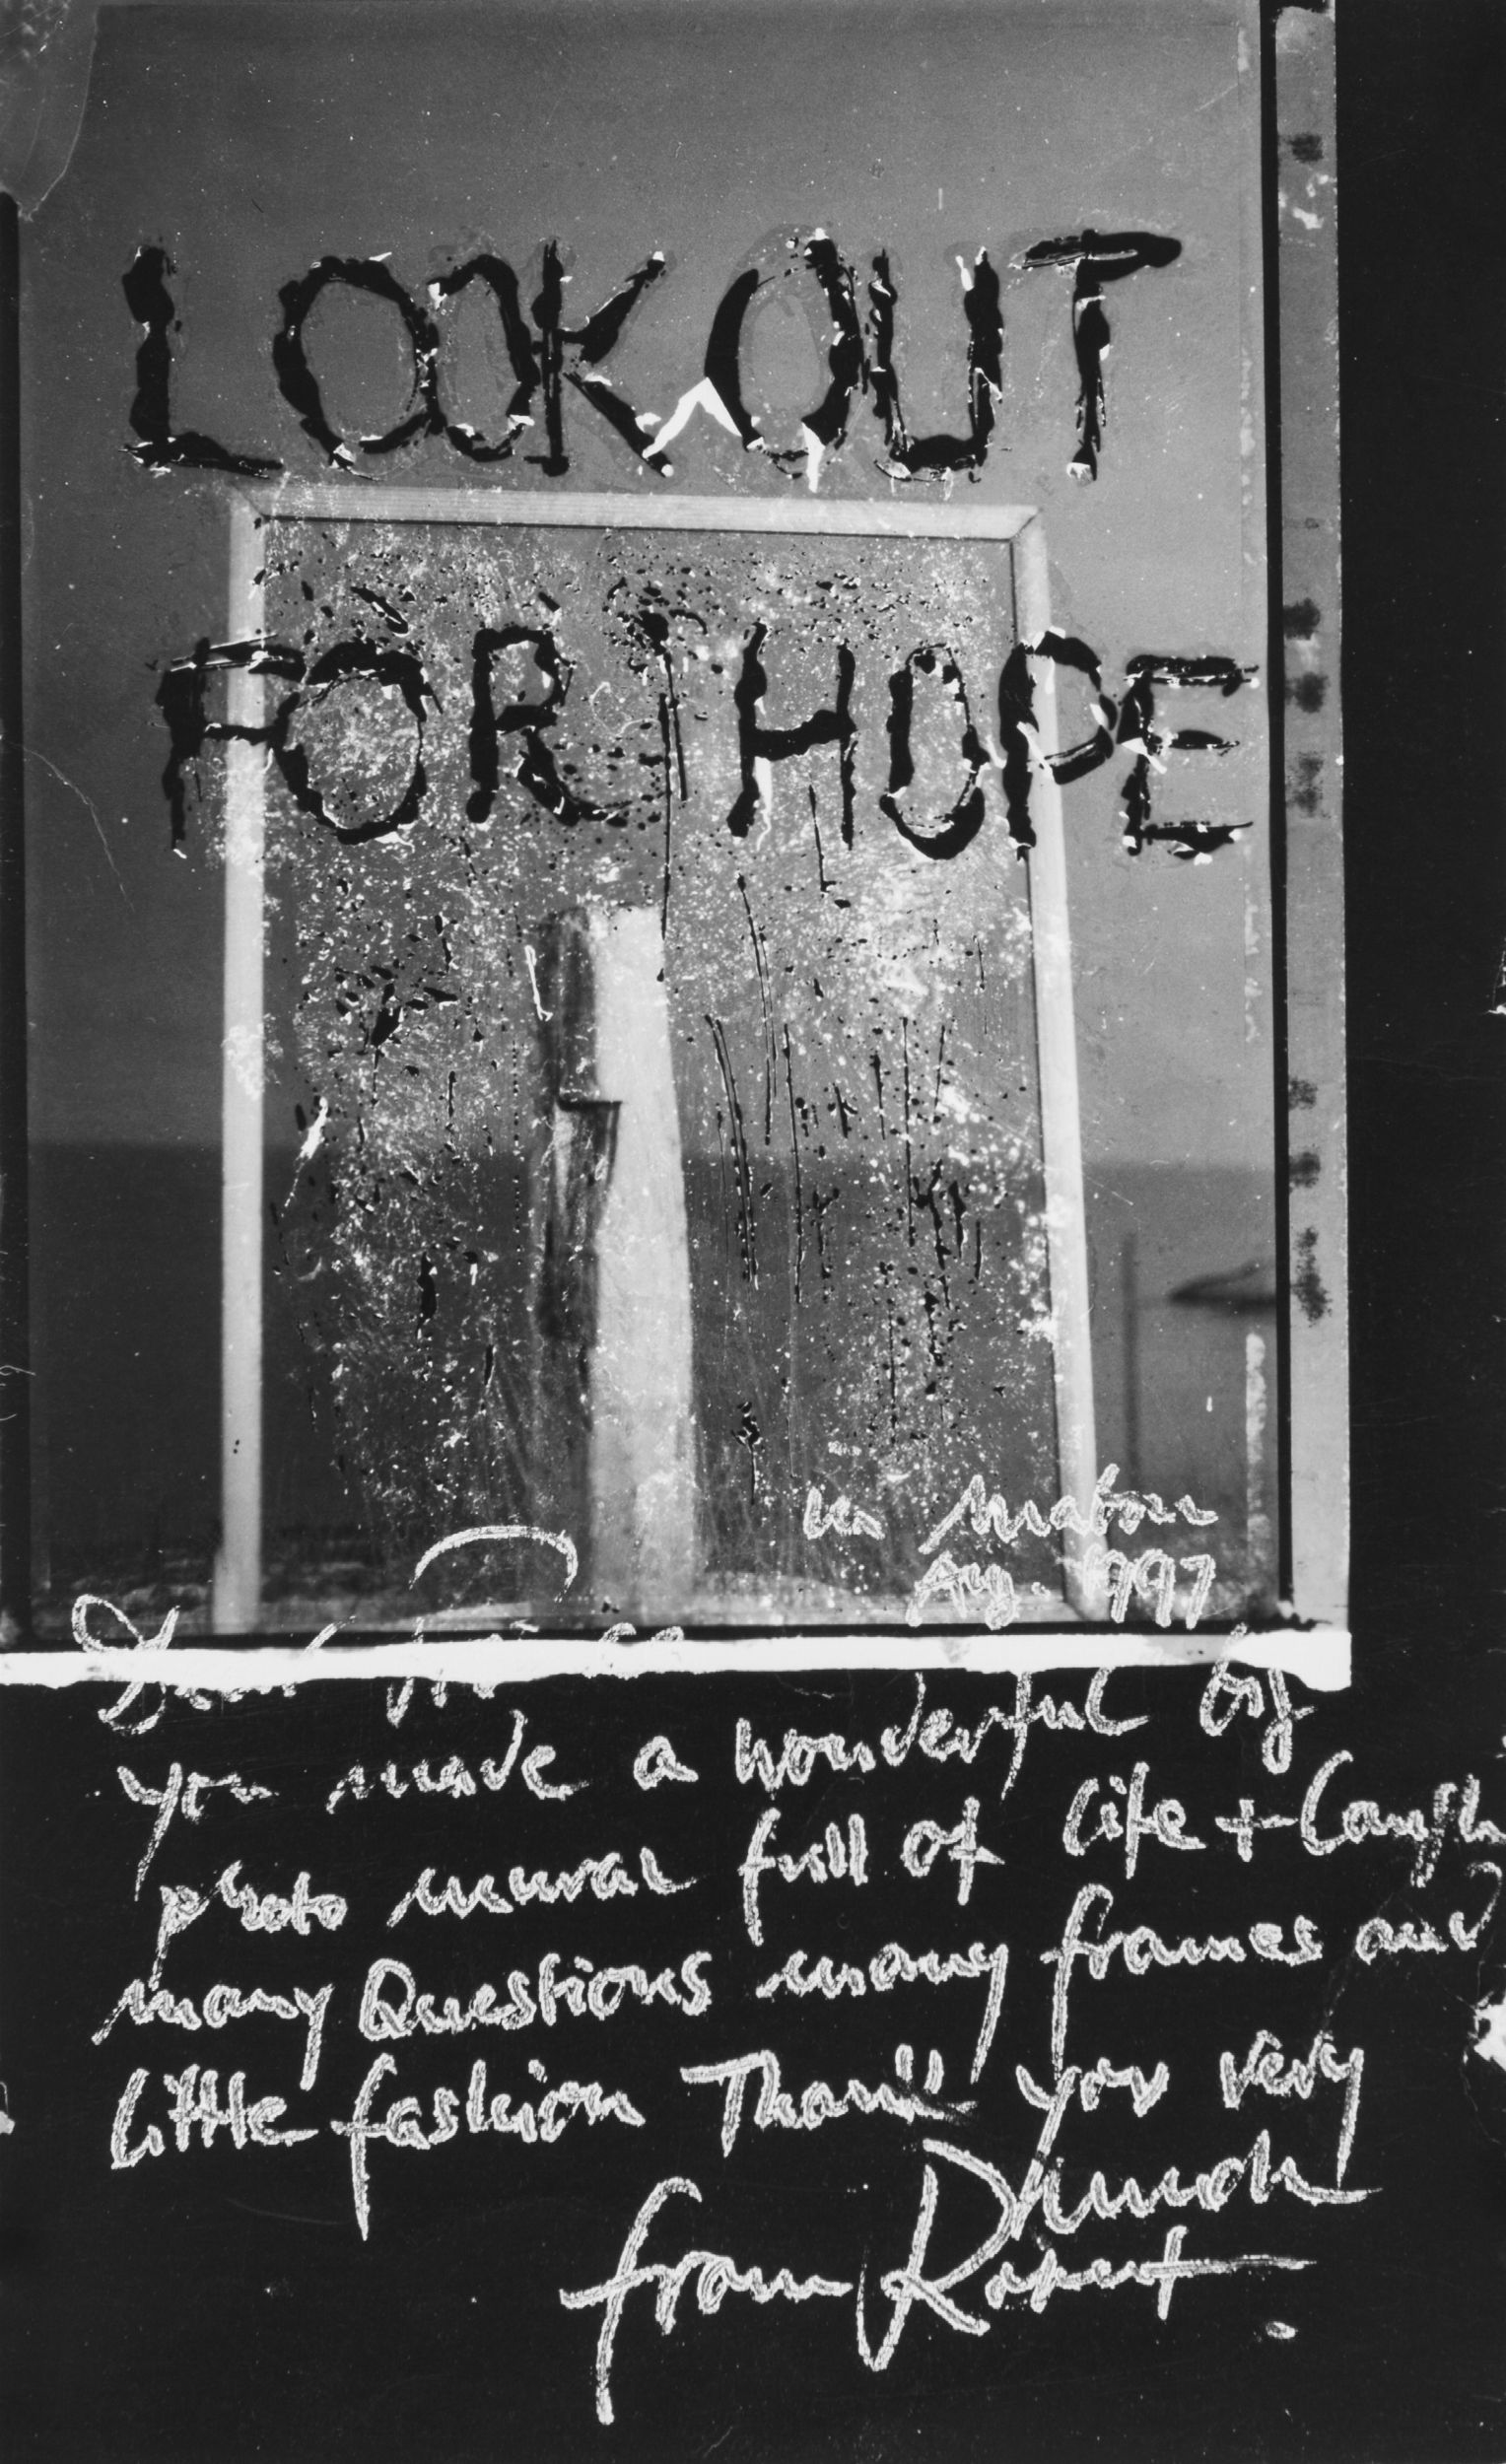 LOOK OUT
FOR HOPE
Mabou
Aug. 1997
Dear
you made a wonderful big
photo mural full of life + Laugh
many Questions many frames and
little fashion Thank you very
much
from Robert